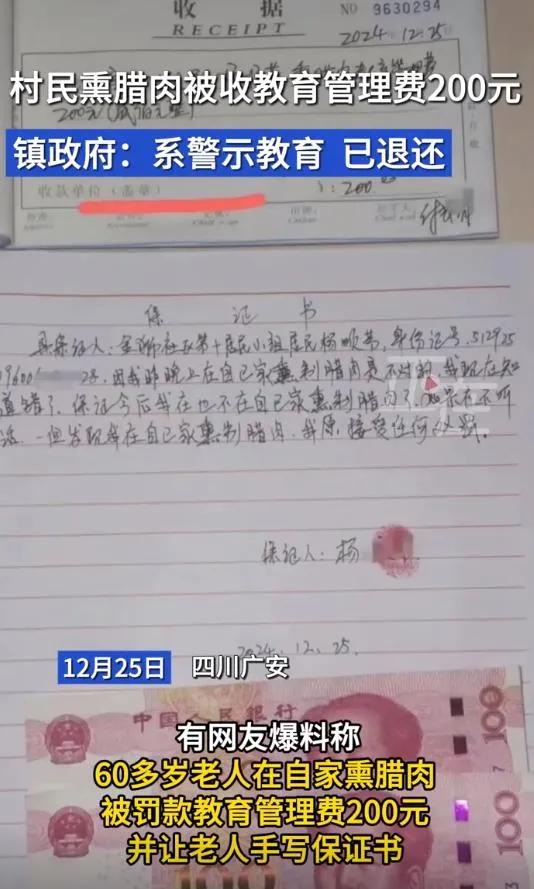 收据
RECEIPT
NO 9630294
2024.12.25
村民熏腊肉被收教育管理费200元
镇政府：系警示教育 已退还
收款单位(盖章)
200
保 证 书
具保证人：金狮社区第十居民小组居民杨顺书，身份证号：512925
19600 28，因我昨晚上在自己家熏制腊肉是不对的，我现在知
道错了，保证今后我在也不在自己家熏制腊肉了，如果在不听
话，一但发现我在自己家熏制腊肉，我愿接受任何处罚。
正在
保证人：杨
2024.12.25.
12月25日 四川广安
中国人民银行
100
100
有网友爆料称
60多岁老人在自家熏腊肉
被罚款教育管理费200元
并让老人手写保证书